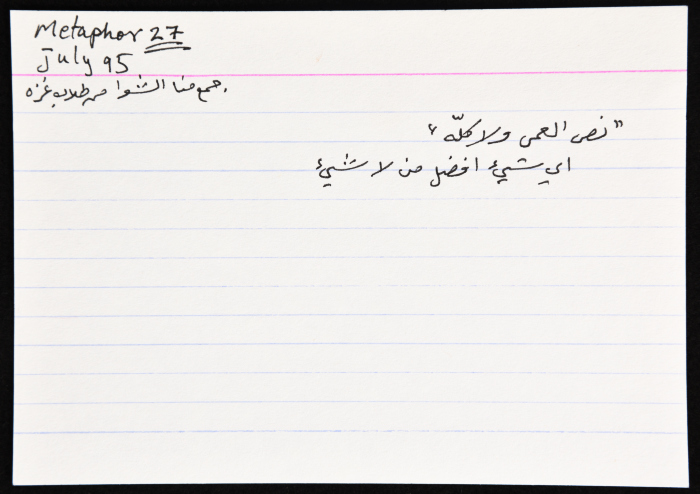 Metaphor 27
July 95
جمع منا الشوا من طلاب غزه.
"نص العمى ولا كلّه"
اي شيئ افضل من لا شيئ